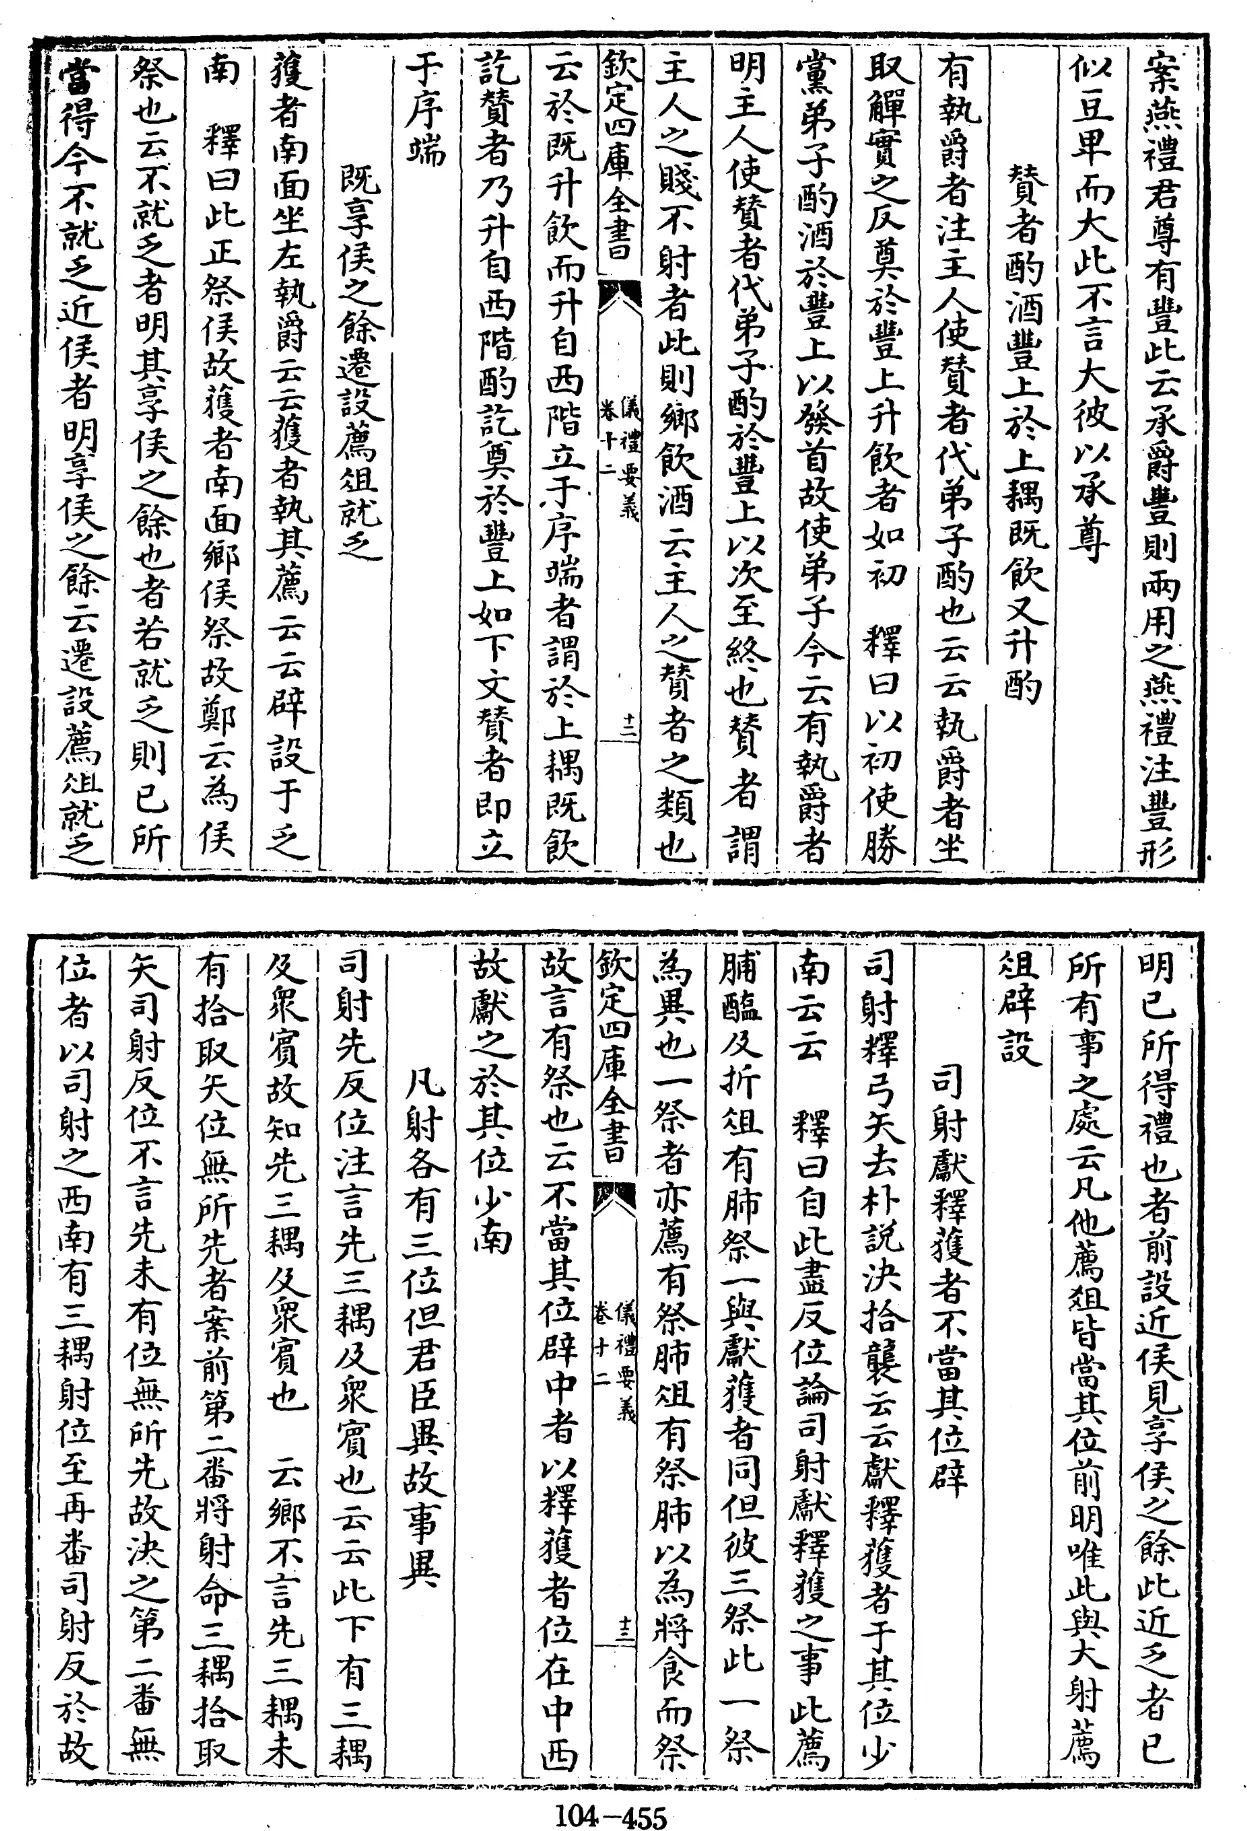 案燕禮君尊有豐此云承爵豐則兩用之燕禮注豐形
似豆卑而大此不言大彼以承尊
賛者酌酒豐上於上耦既飲又升酌
有執爵者注主人使賛者代弟子酌也云云執爵者坐
取觶實之反奠於豐上升飲者如初　釋曰以初使勝
黨弟子酌酒於豐上以發首故使弟子今云有執爵者
明主人使賛者代弟子酌於豐上以次至終也賛者謂
主人之賤不射者此則鄉飲酒云主人之賛者之類也
欽定四庫全書
儀禮要義
卷十二
十二
云於既升飲而升自西階立于序端者謂於上耦既飲
訖賛者乃升自西階酌訖奠於豐上如下文賛者即立
于序端
既享侯之餘遷設薦俎就乏
獲者南面坐左執爵云云獲者執其薦云云辟設于乏
南　釋曰此正祭侯故獲者南面鄉侯祭故鄭云為侯
祭也云不就乏者明其享侯之餘也者若就乏則已所
當得今不就乏近侯者明享侯之餘云遷設薦俎就乏
明已所得禮也者前設近侯見享侯之餘此近乏者已
所有事之處云凡他薦俎皆當其位前明唯此與大射薦
俎辟設
司射獻釋獲者不當其位辟
司射釋弓矢去朴說決拾襲云云獻釋獲者于其位少
南云云　釋曰自此盡反位論司射獻釋獲之事此薦
脯醢及折俎有肺祭一與獻獲者同但彼三祭此一祭
為異也一祭者亦薦有祭肺俎有祭肺以為將食而祭
欽定四庫全書
儀禮要義
卷十二
十三
故言有祭也云不當其位辟中者以釋獲者位在中西
故獻之於其位少南
凡射各有三位但君臣異故事異
司射先反位注言先三耦及衆賓也云云此下有三耦
及衆賓故知先三耦及衆賓也　云鄉不言先三耦未
有拾取矢位無所先者案前第二番將射命三耦拾取
矢司射反位不言先未有位無所先故決之第二番無
位者以司射之西南有三耦射位至再番司射反於故
104-455